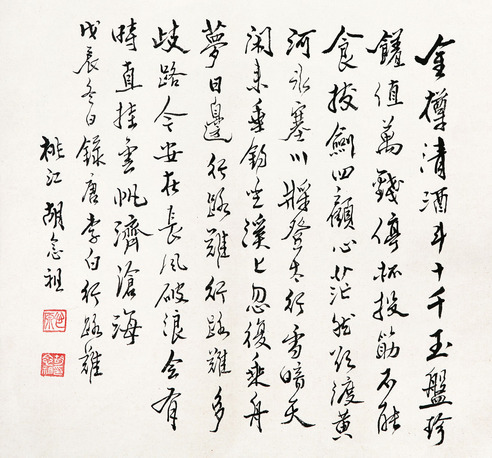 金樽清酒斗十千玉盤珍
饈值萬錢停杯投筯不能
食拔劍四顧心茫然欲渡黃
河冰塞川將登太行雪暗天
閑來垂釣坐溪上忽復乘舟
夢日邊行路難行路難多
歧路今安在長風破浪會有
時直挂雲帆濟滄海
戊辰冬日錄唐李白行路難
桃江胡念祖